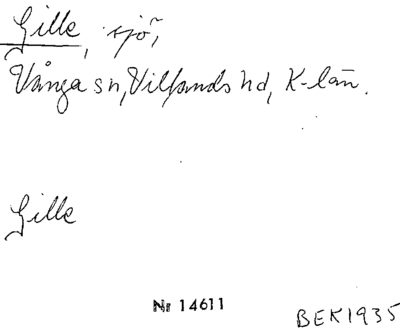 Gille, sjö,
Vånga sn, Villands hd, K-län.
Gille
Nr 14611
BEK1935